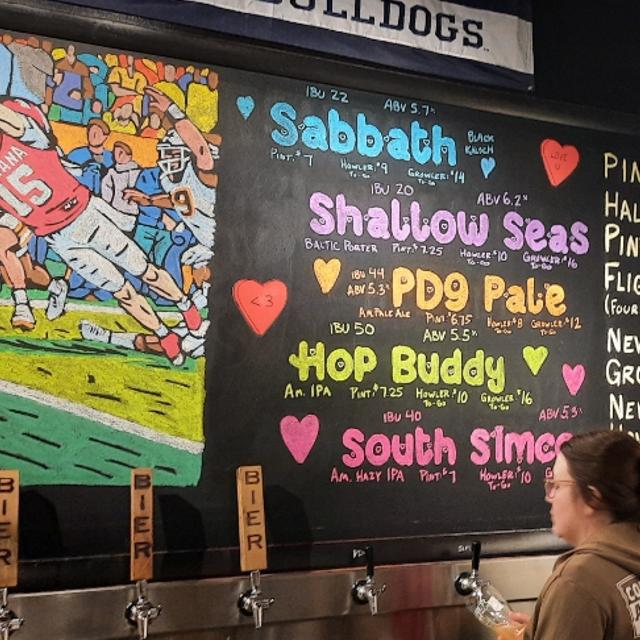 BULLDOGS
IBU 22 ABV 5.7%
Sabbath BLACK KOLSCH
PINT: $7 HOWLER: $9 TO-GO GROWLER: $14 TO-GO
LOVE U
IBU 20 ABV 6.2%
Shallow Seas
BALTIC PORTER PINT: $7.25 HOWLER: $10 TO-GO GROWLER: $16 TO-GO
IBU 44
ABV 5.3% PD9 Pale
AM PALE ALE PINT: $6.75 HOWLER: $8 TO-GO GROWLER: $12 TO-GO
<3
IBU 50 ABV 5.5%
Hop Buddy
AM. IPA PINT: $7.25 HOWLER: $10 TO-GO GROWLER: $16 TO-GO
IBU 40 ABV 5.5%
South Simcoe
AM. HAZY IPA PINT: $7 HOWLER: $10 TO-GO
PIN
HAL
PIN
FLIG
(FOUR
NEW
GRO
NEW
ANA
15
9
BIER
BIER
BIER